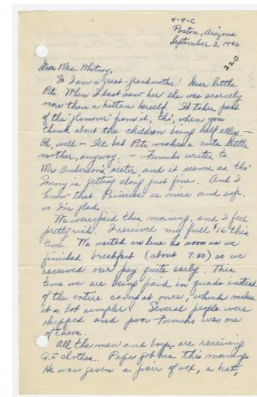 4-9-C
Poston, Arizona
September 3, 1942
220
Dear Mrs. Whitney,
So I am a great-grandmother! Dear little
Pete. When I last saw her she was scarcely
more than a kitten herself. It takes part
of the "glamour" from it, tho', when you
think about the children being half-alley –
Oh, well – I'll bet Pete makes a cute little
mother, anyway. – Fumiko writes to
Mrs. Anderson's sister, and it seems as tho'
Tommy is getting along just fine. And I
know that Princess is nice and safe,
so I'm glad.
We were paid this morning, and I feel
pretty rich. I received my full $16 this
time. We waited in line as soon as we
finished breakfast (about 7:30) so we
received our pay quite early. This
time we are being paid in quads instead
of the entire camp at once, which makes
it a lot simpler. Several people were
skipped and poor Fumiko was one
of them.
All the men and boys are receiving
G.I. clothes. Papa got his this morning.
He was given a pair of sox, a hat,